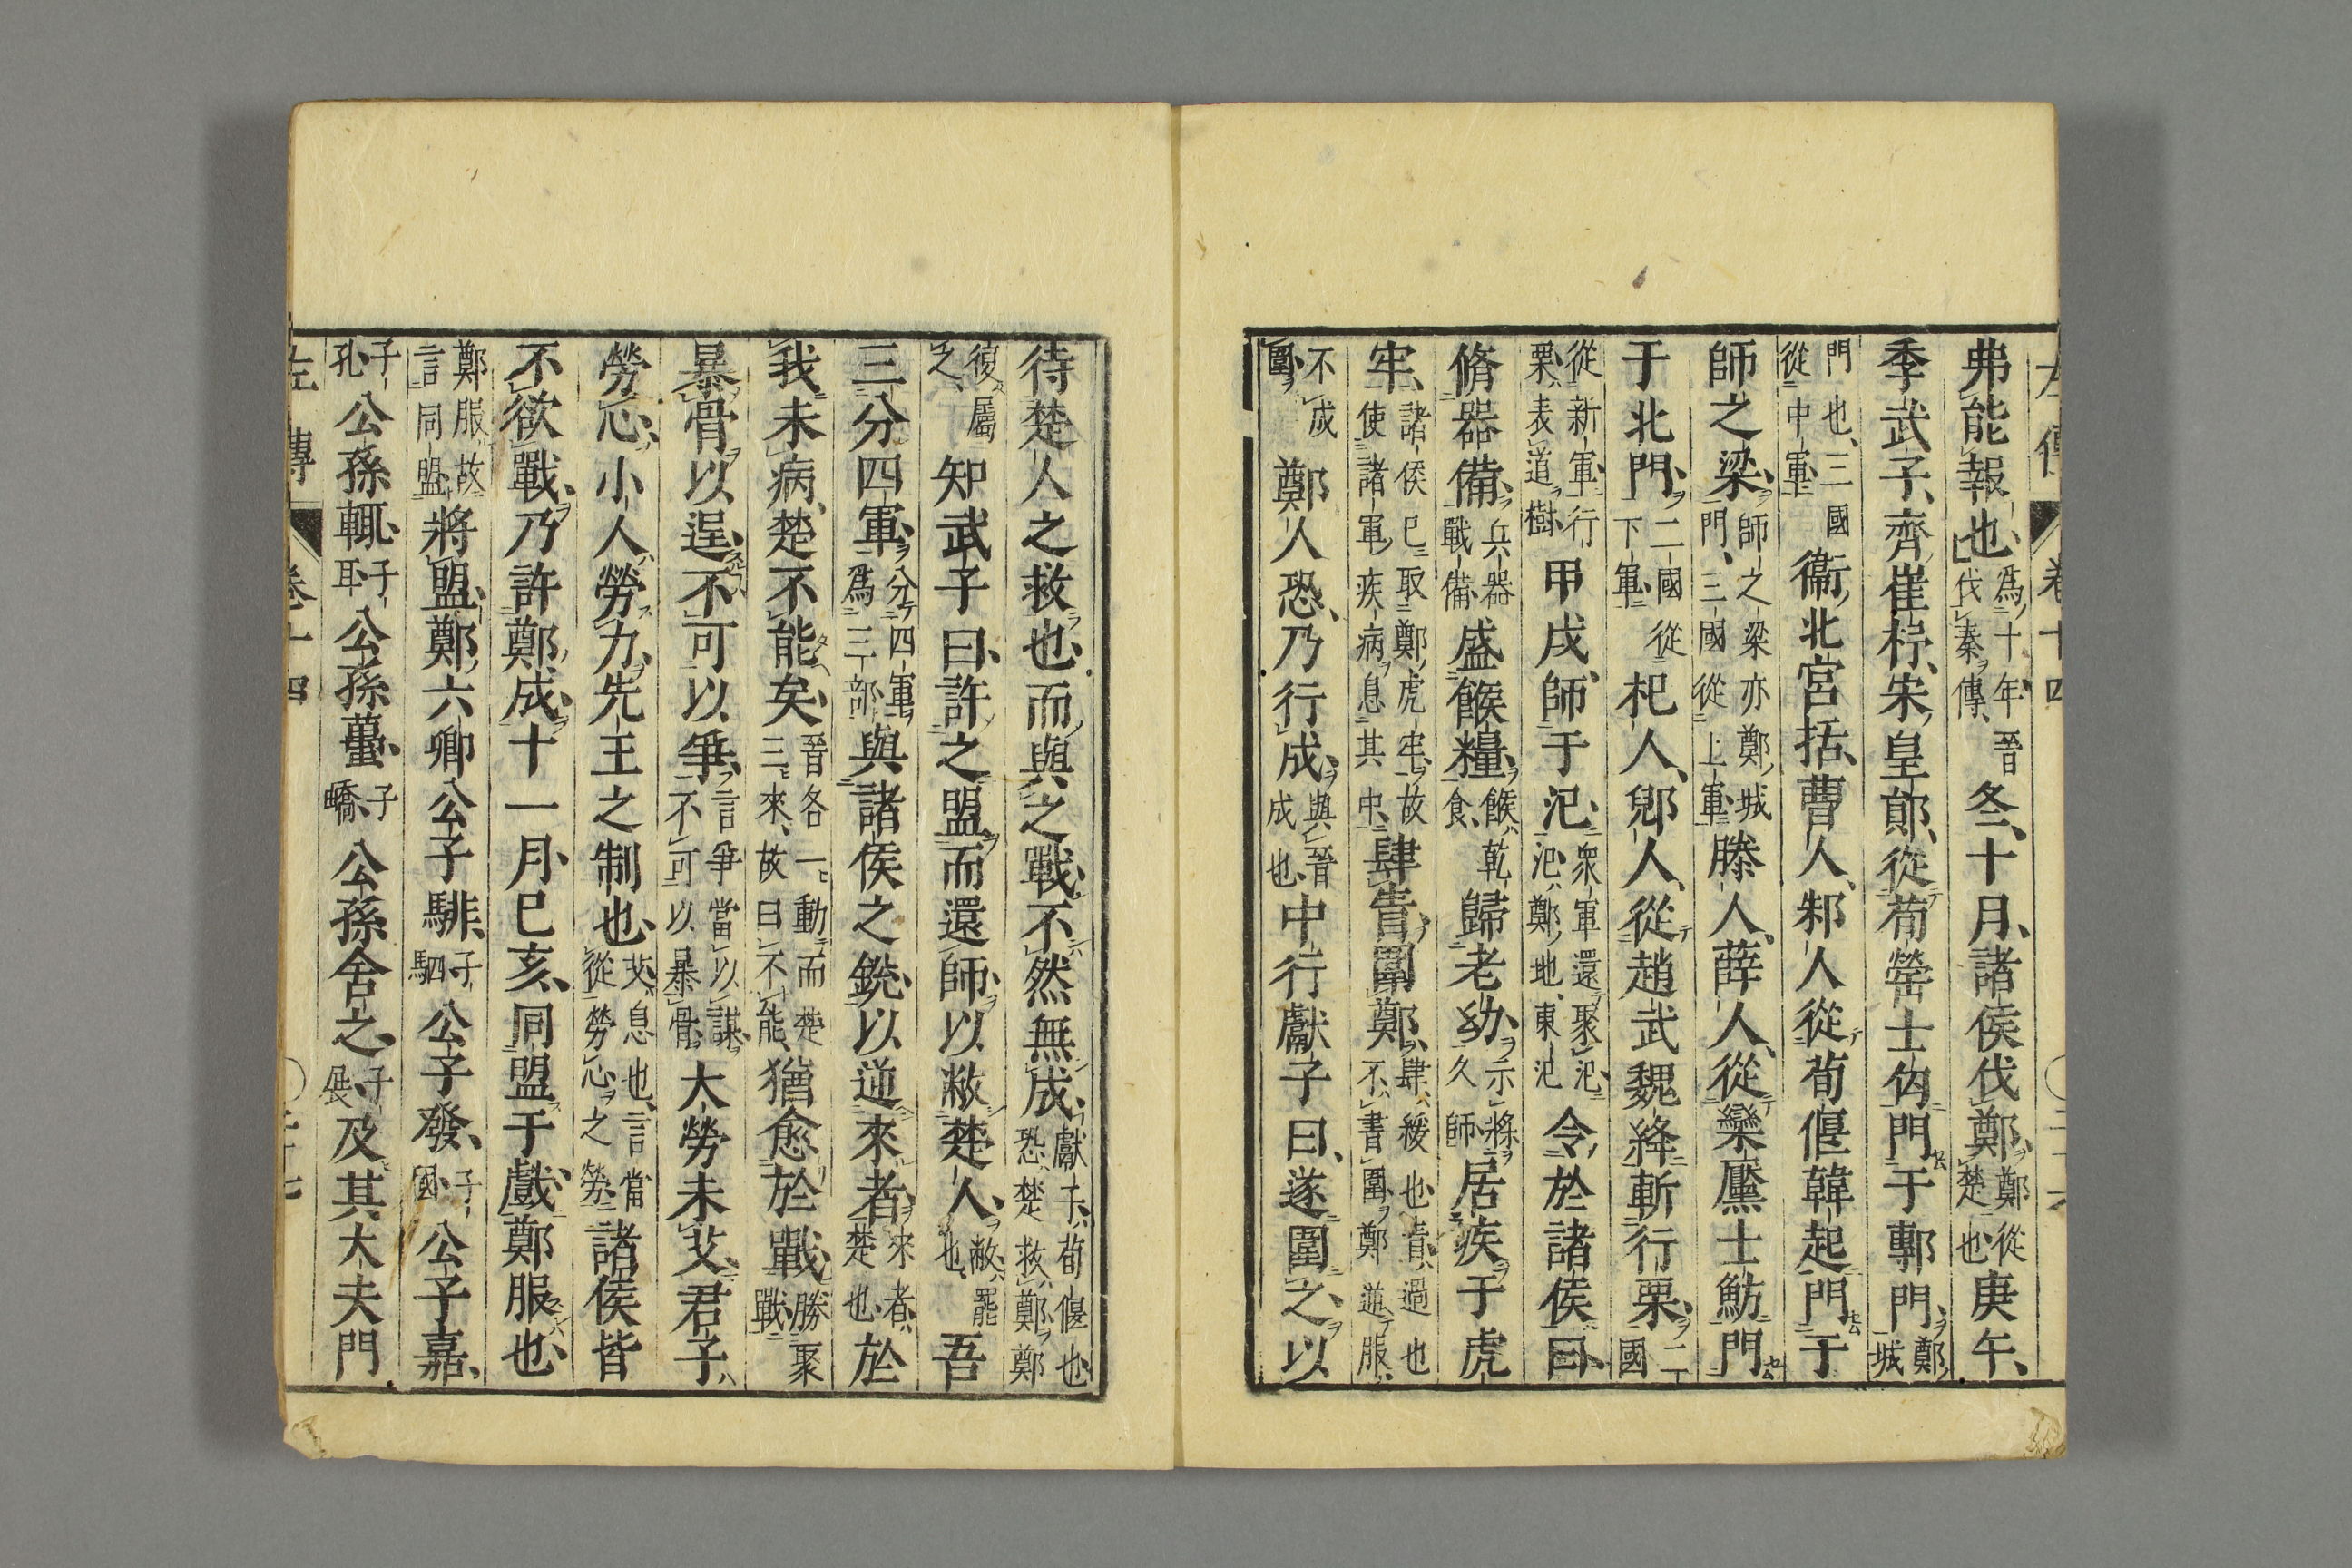 弗能報也爲十年晉伐秦傳冬十月諸侯伐鄭鄭從楚也庚午
季武子齊崔杼宋皇鄖從荀罃士匄門于鄟門鄭城
門也三國從中軍衞北宮括曹人邾人從荀偃韓起門于
師之梁師之梁亦鄭城門三國從上軍滕人薛人從欒黶士魴門
于北門二國從下軍杞人郳人從趙武魏絳斬行栗二國
從新軍行栗表道樹甲戌師于氾衆軍還聚氾氾鄭地東氾令於諸侯曰
脩器備兵器戰備盛餱糧餱乾食歸老幼示將久師居疾于虎
牢諸侯已取鄭虎牢故使諸軍疾病息其中肆眚圍鄭肆緩也眚過也不書圍鄭逆服
不成圍鄭人恐乃行成與晉成也中行獻子曰遂圍之以
待楚人之救也而與之戰不然無成獻子荀偃也恐楚救鄭鄭
復屬之知武子曰許之盟而還師以敝楚人敝罷也吾
三分四軍分四軍爲三部與諸侯之銳以逆來者來者楚也於
我未病楚不能矣晉各一動而楚三來故曰不能猶愈於戰勝聚戰
暴骨以逞不可以爭言爭當以謀不可以暴骨大勞未艾君子
勞心小人勞力先王之制也艾息也言當從勞心之勞諸侯皆
不欲戰乃許鄭成十一月己亥同盟于戲鄭服也
鄭服故言同盟將盟鄭六卿公子騑子駟公子發子國公子嘉
子孔公孫輒子耳公孫蠆子蟜公孫舍之子展及其大夫門
左傳 卷十四